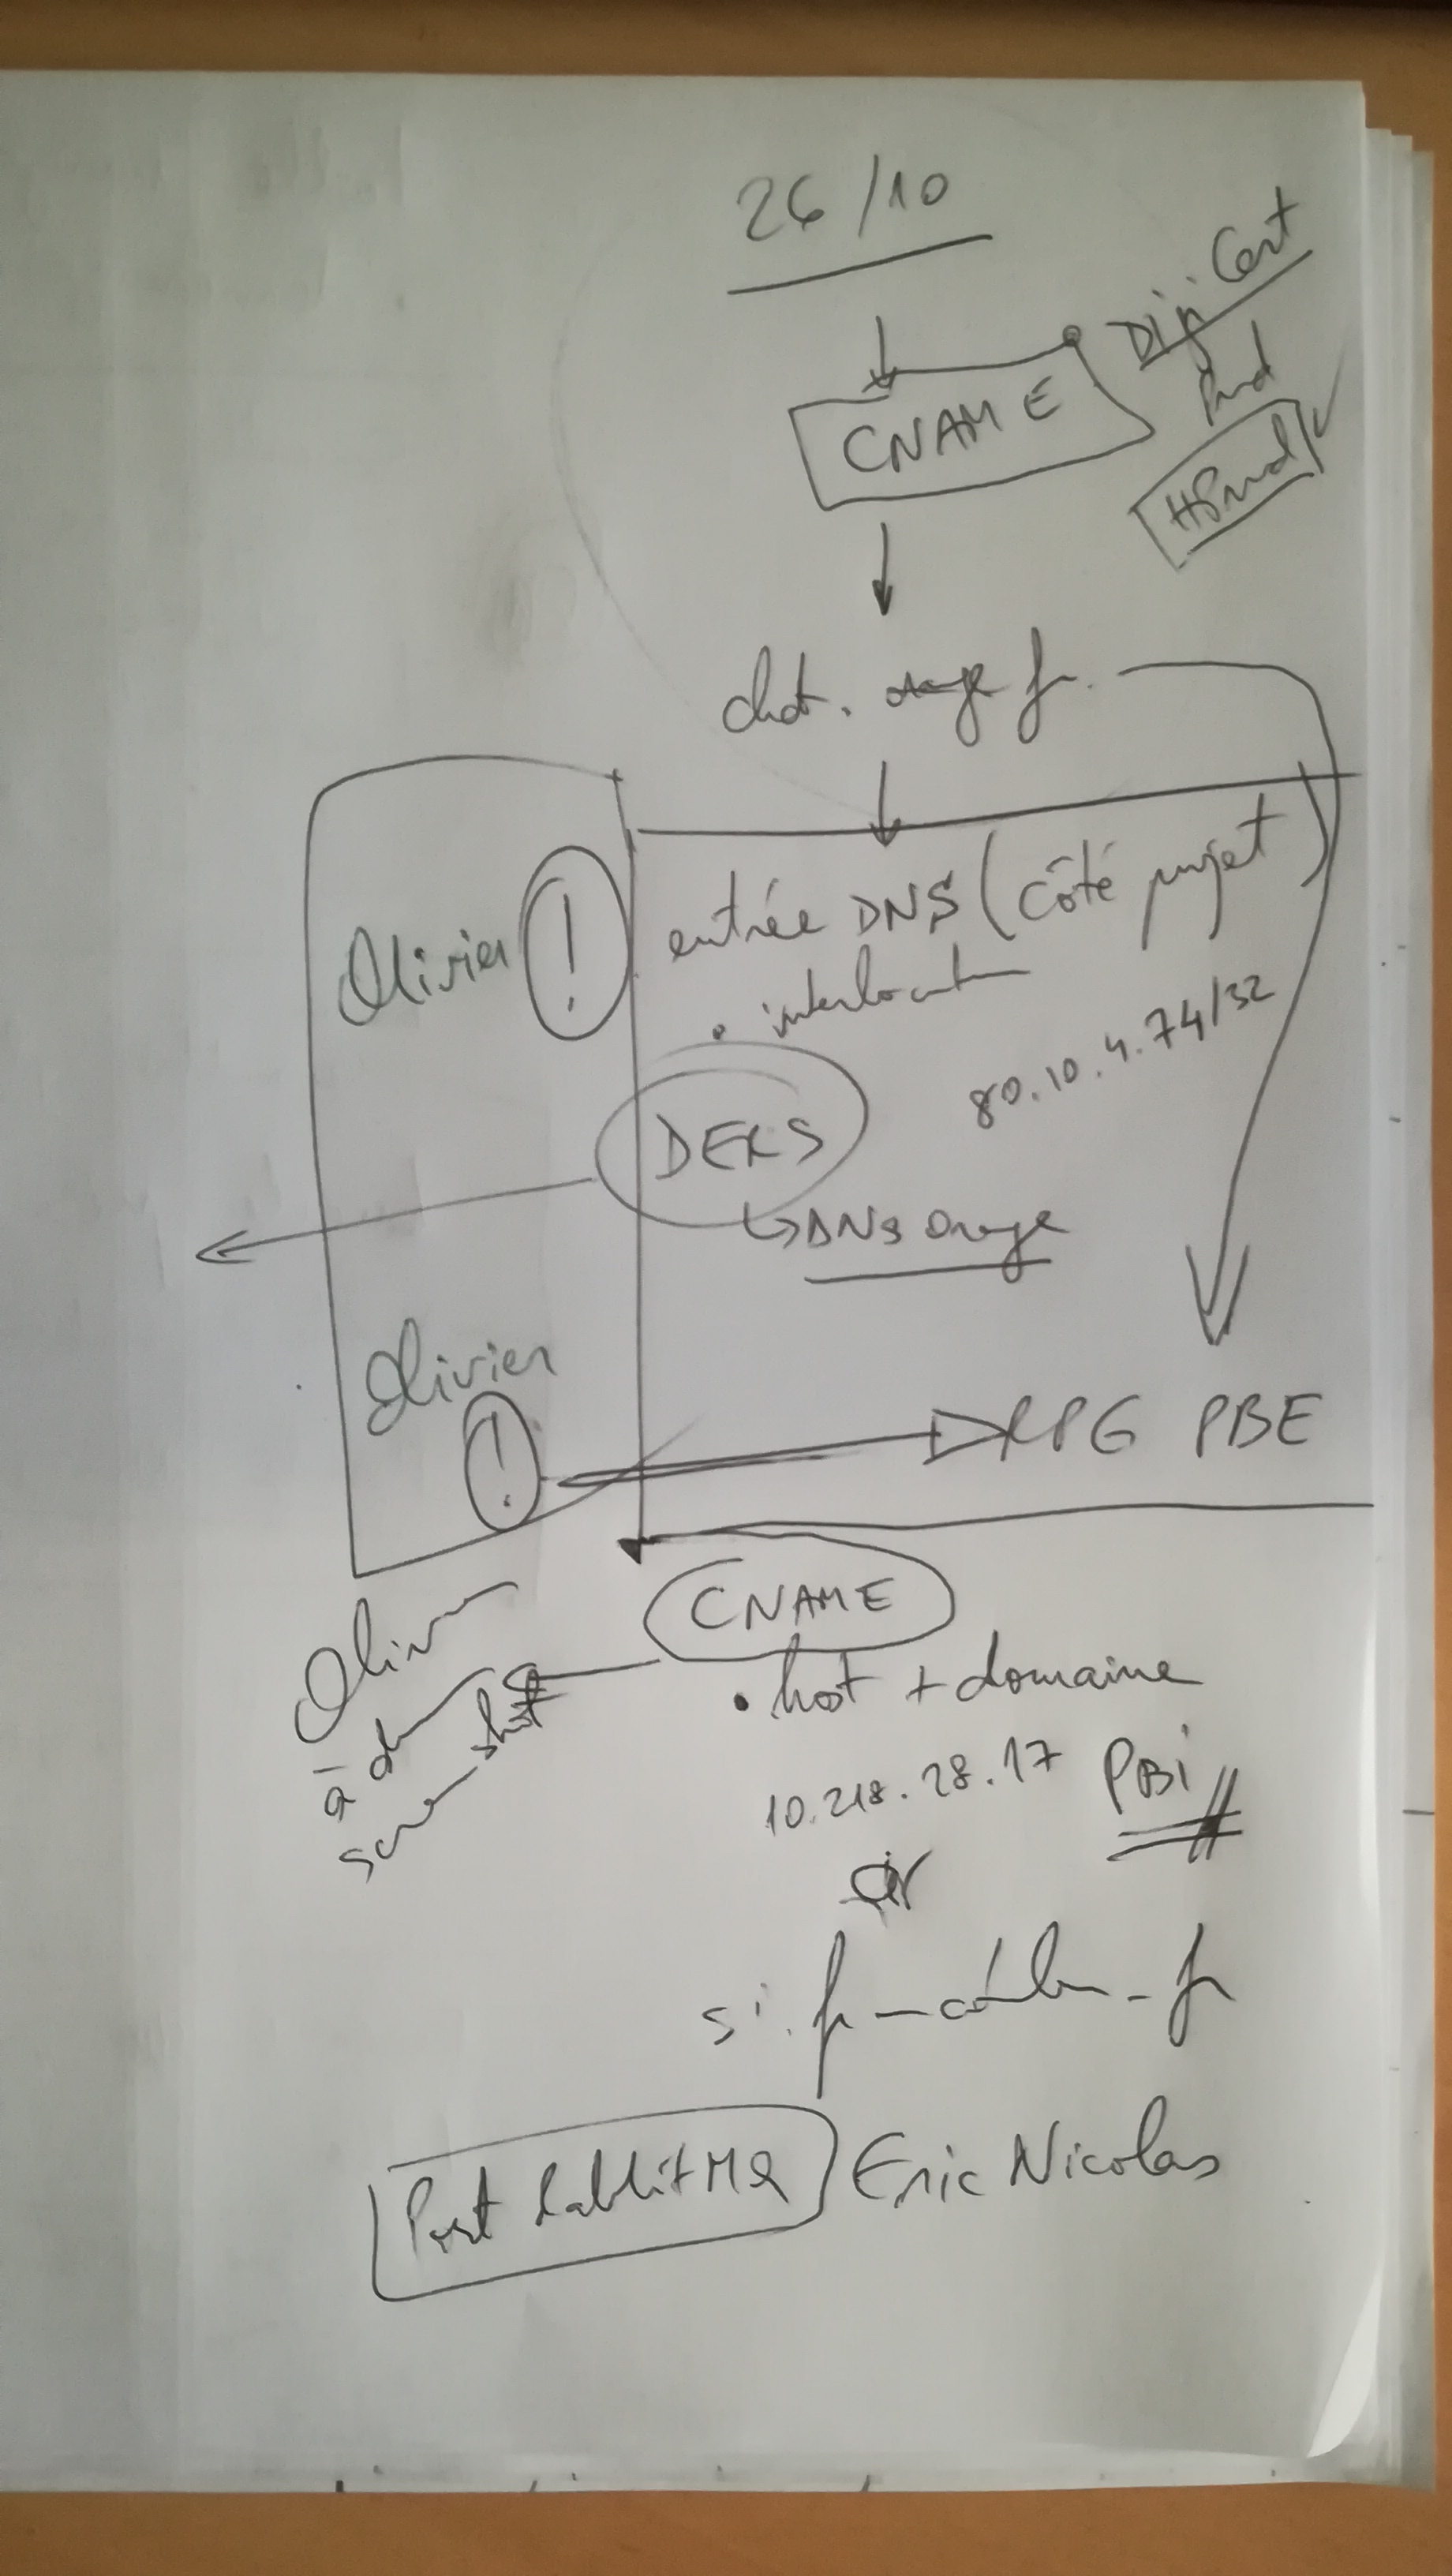 26/10
Digi Cert
Prod
CNAME
HProd
chat. orange fr.
Olivier ! entrée DNS (côté projet)
• interlocuteur
80.10.4.74/32
DERS
↳ DNS Orange
Olivier
! RPG PBE
CNAME
Olivier
• host + domaine
à
shot
10.218.28.17 PBI
si. fr
fr
Port RabbitMQ Eric Nicolas